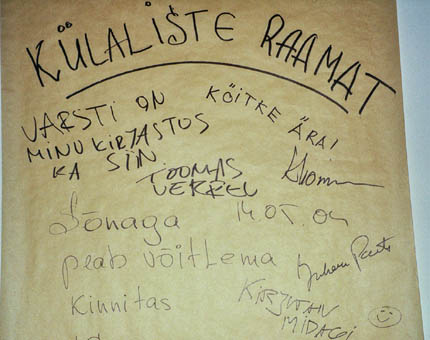 KÜLALIŠTE RAAMAT
VARSTI ON
MINU KIRJASTUS
KA SIIN
KÖITKE ÄRA!
TOOMAS
VERREV
14.05.04
Sõnaga
peab võitlema
Kinnitas
KIRJUTAN
MIDAGI